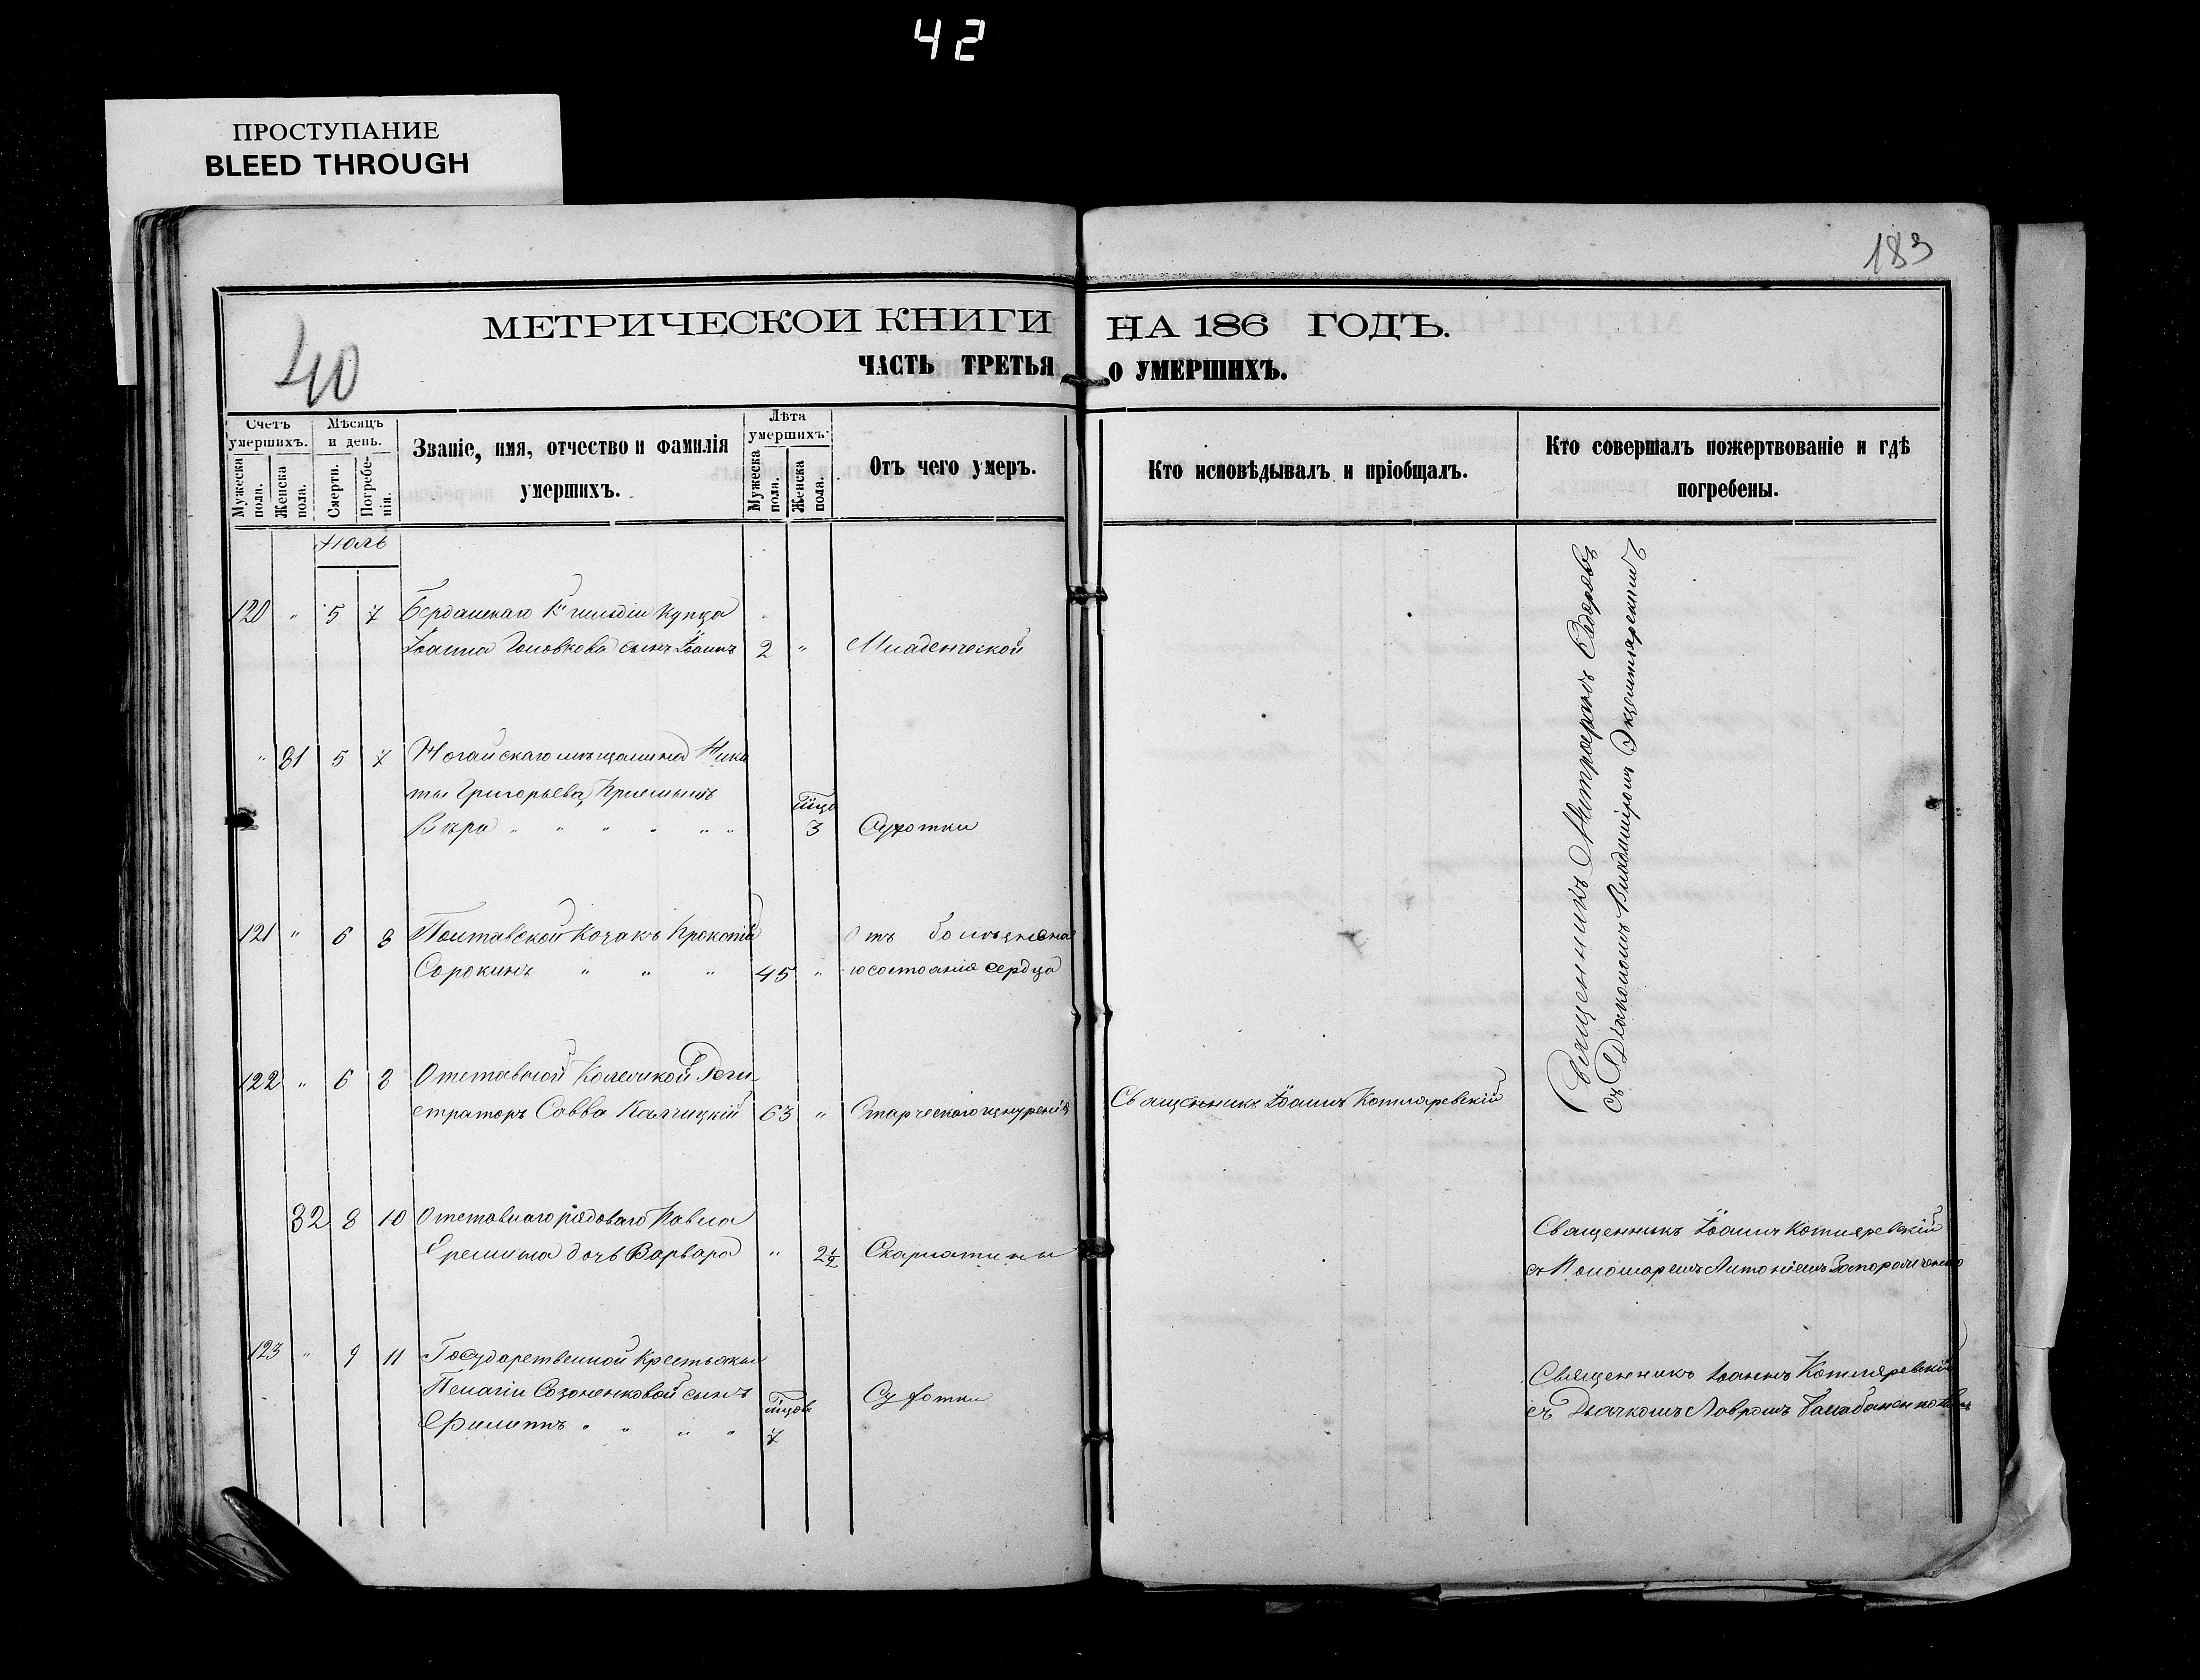 42
ПРОСТУПАНИЕ
BLEED THROUGH
183
40
МЕТРИЧЕСКОИ КНИГИ НА 186 ГОДЪ.
ЧАСТЬ ТРЕТЬЯ О УМЕРШИХЪ.
Счетъ умершихъ.
Мужеска пола.
Женска пола.
Мѣсяцъ и день.
Смерти.
Погребенія.
Званіе, имя, отчество и фамилія
умершихъ.
Лѣта умершихъ.
Мужеска пола.
Женска пола.
Отъ чего умеръ.
Кто исповѣдывалъ и пріобщалъ.
Кто совершалъ пожертвованіе и гдѣ
погребены.
Іюль
120 " 5 7 Бердянскаго гильдіи купца
Іоанна Головкова сынъ Іоаннъ 2 " Младенческой
" 31 5 7 Ногайскаго мѣщанина Ники
ты Григорьева
Вѣра " " " " " " 3 Сухотки
121 " 6 8 Полтавской козакъ
Сорокинъ " " " 45 " сердца
Отъ болѣзнена
122 " 6 8 Отставной Колежской Реги-
страторъ Савва 63 " Старческаго Священникъ Іоаннъ Котляревскій
Священникъ Митрофанъ
съ Діакономъ Владиміромъ
32 8 10 Отставнаго рядоваго Павла
Еремина дочь Варвара " 2½ Скарлатины
Священникъ Іоаннъ Котляревскій
съ Пономаремъ Антоніемъ
123 " 9 11 Государственной Крестьянки
Пелагіи Созоненковой сынъ
Филиппъ " " " " 7 Сухотки
Священникъ Іоаннъ Котляревскій
съ Дьячкомъ Лавромъ